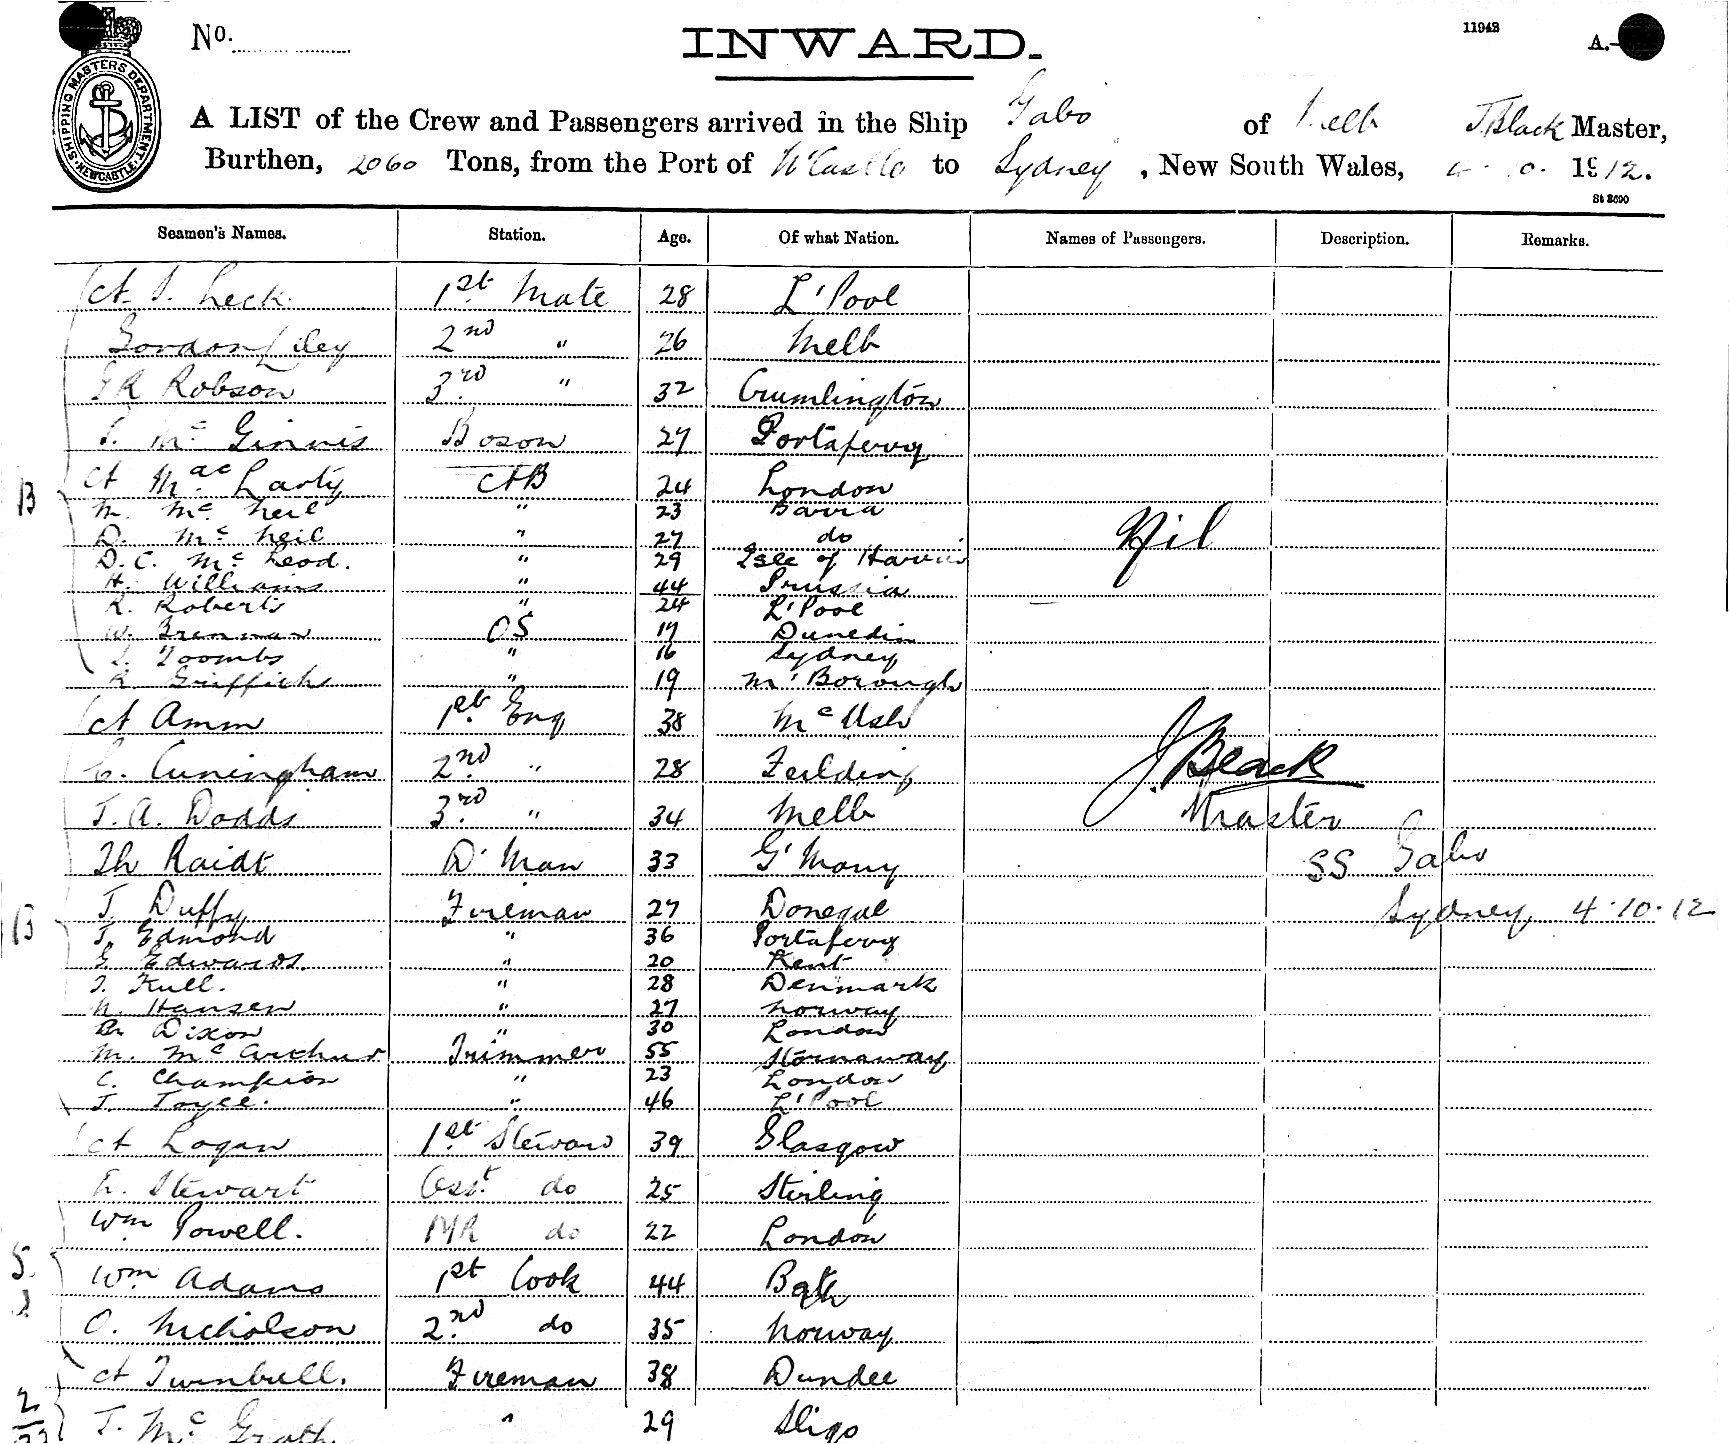 No.
INWARD.
11943
A.
SHIPPING MASTERS DEPARTMENT NEWCASTLE
A LIST of the Crew and Passengers arrived in the Ship Gabo of Melb J Black Master,
Burthen, 2060 Tons, from the Port of N'Castle to Sydney, New South Wales, 4 10. 1912.
St 3690
Seamen's Names. Station. Age. Of what Nation. Names of Passengers. Description. Remarks.
A. Leck 1st Mate 28 L'Pool
Gordon 2nd " 26 Melb
Robson 3rd " 32 Crumlington
McGinnis Boson 27 Portaferry
A MacLarty AB 24 London
B
M. McNeil " 23 Barra
D. McNeil " 27 do
Nil
D.C. McLeod. " 29 Isle of Harris
H. Williams " 44 Prussia
R. Roberts " 24 L'Pool
W. Brennan OS 17 Dunedin
Toombs " 16 Sydney
R Griffiths " 19 M'Borough
A Amm 1st Eng 38
C. Cuningham 2nd " 28 Feilding
J. Black
J. A. Dodds 3rd " 34 Melb
Master
Th Raidt D'Man 33 G'Many
SS Gabo
J. Duffy Fireman 27 Donegal
Sydney, 4.10.12
B
J. Edmond " 36 Portaferry
G Edwards. " 20 Kent
Kull. " 28 Denmark
N. Hansen " 27 Norway
Dixon " 30 London
M. McArthur Trimmer 55 Stornaway
C. Champion " 23 London
J. Joyce. " 46 L'Pool
A Logan 1st Steward 39 Glasgow
Stewart Asst. do 25 Stirling
Wm Powell. MR do 22 London
5
Wm Adams 1st Cook 44 Bath
O. Nicholson 2nd do 35 Norway
A Turnbull. Fireman 38 Dundee
2
J. McGrath " 29 Sligo